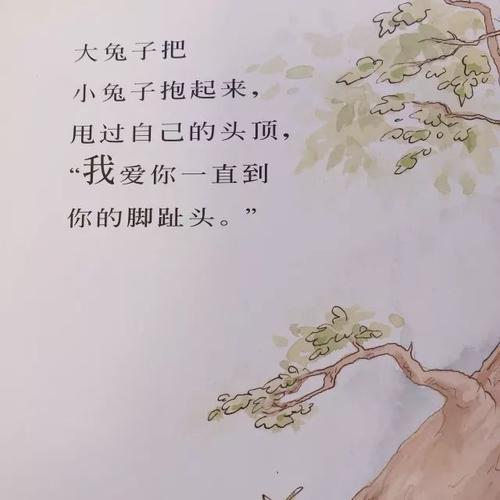 大兔子把
小兔子抱起来，
甩过自己的头顶，
“我爱你一直到
你的脚趾头。”